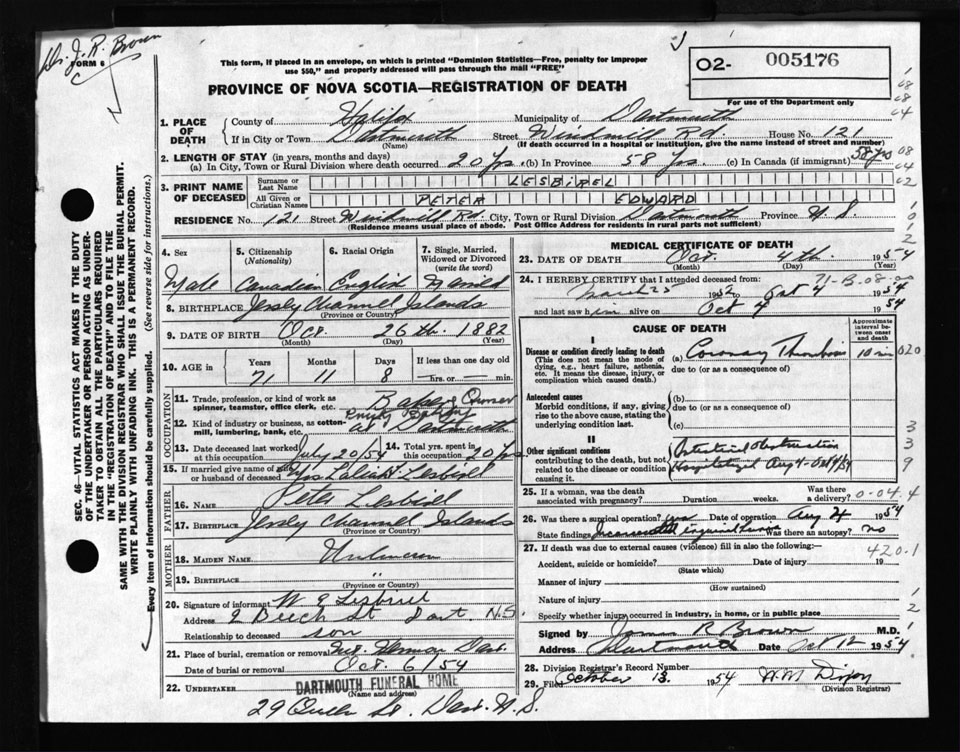 Dr. J. R. Brown
FORM 6
This form, if placed in an envelope, on which is printed "Dominion Statistics—Free, penalty for improper
use $50," and properly addressed will pass through the mail "FREE"
O2- 005176
For use of the Department only
PROVINCE OF NOVA SCOTIA—REGISTRATION OF DEATH
1. PLACE OF DEATH
County of Halifax Municipality of Dartmouth
If in City or Town Dartmouth Street Windmill Rd. House No. 121
(Name) (If death occurred in a hospital or institution, give the name instead of street and number)
2. LENGTH OF STAY (in years, months and days)
(a) In City, Town or Rural Division where death occurred 20 yrs (b) In Province 58 yrs. (c) In Canada (if immigrant) 58 yrs
3. PRINT NAME OF DECEASED
Surname or Last Name LESBIREL
All Given or Christian Names PETER EDWARD
RESIDENCE No. 121 Street Windmill Rd City, Town or Rural Division Dartmouth Province N.S.
(Residence means usual place of abode. Post Office Address for residents in rural parts not sufficient)
4. Sex Male
5. Citizenship (Nationality) Canadian
6. Racial Origin English
7. Single, Married, Widowed or Divorced (write the word) Married
8. BIRTHPLACE Jersey Channel Islands
(Province or Country)
9. DATE OF BIRTH Oct. 26th. 1882
(Month) (Day) (Year)
10. AGE in Years Months Days If less than one day old
71 11 8 hrs. or min.
OCCUPATION
11. Trade, profession or kind of work as spinner, teamster, office clerk, etc. Baker Owner
12. Kind of industry or business, as cotton-mill, lumbering, bank, etc. at Dartmouth
13. Date deceased last worked at this occupation July 20/54
14. Total yrs. spent in this occupation 20 yrs
15. If married give name of wife or husband of deceased Mrs Lesbirel
FATHER
16. NAME Peter Lesbirel
17. BIRTHPLACE Jersey Channel Islands
(Province or Country)
MOTHER
18. MAIDEN NAME Unknown
19. BIRTHPLACE "
(Province or Country)
20. Signature of informant W E Lesbirel
Address 9 Beech St Dart. N.S.
Relationship to deceased son
21. Place of burial, cremation or removal Mt. Hermon Dart.
Date of burial or removal Oct. 6/54
22. UNDERTAKER DARTMOUTH FUNERAL HOME
(Name and address)
29 Queen St. Dart. N.S.
MEDICAL CERTIFICATE OF DEATH
23. DATE OF DEATH Oct. 4th. 1954
(Month) (Day) (Year)
24. I HEREBY CERTIFY that I attended deceased from: 71-B-08-00
March 25 1952 to Oct 4 1954
and last saw him alive on Oct 4 1954
CAUSE OF DEATH
Approximate interval between onset and death
I
Disease or condition directly leading to death
(This does not mean the mode of dying, e.g., heart failure, asthenia, etc. It means the disease, injury, or complication which caused death.)
(a) Coronary Thrombosis 10 min
due to (or as a consequence of)
Antecedent causes
Morbid conditions, if any, giving rise to the above cause, stating the underlying condition last.
(b)
due to (or as a consequence of)
(c)
II
Other significant conditions
contributing to the death, but not related to the disease or condition causing it.
Intestinal Obstruction
Hospitalized Aug 4 - Oct 4/54
25. If a woman, was the death associated with pregnancy? Duration weeks. Was there a delivery? 0-04.4
26. Was there a surgical operation? yes Date of operation Aug 4 1954
State findings Incarcerated inguinal hernia Was there an autopsy? no
27. If death was due to external causes (violence) fill in also the following:— 420.1
Accident, suicide or homicide? Date of injury 19
(State which)
Manner of injury
(How sustained)
Nature of injury
Specify whether injury occurred in industry, in home, or in public place
Signed by James R Brown M.D.
Address Dartmouth Date Oct 12 1954
28. Division Registrar's Record Number
29. Filed October 13. 1954 W.M. Dixon
(Division Registrar)
SEC. 46—VITAL STATISTICS ACT MAKES IT THE DUTY
OF THE UNDERTAKER OR PERSON ACTING AS UNDER-
TAKER TO OBTAIN ALL THE PARTICULARS REQUIRED
IN THE "REGISTRATION OF DEATH" AND TO FILE THE
SAME WITH THE DIVISION REGISTRAR WHO SHALL ISSUE THE BURIAL PERMIT.
WRITE PLAINLY WITH UNFADING INK. THIS IS A PERMANENT RECORD.
Every item of information should be carefully supplied. (See reverse side for instructions.)